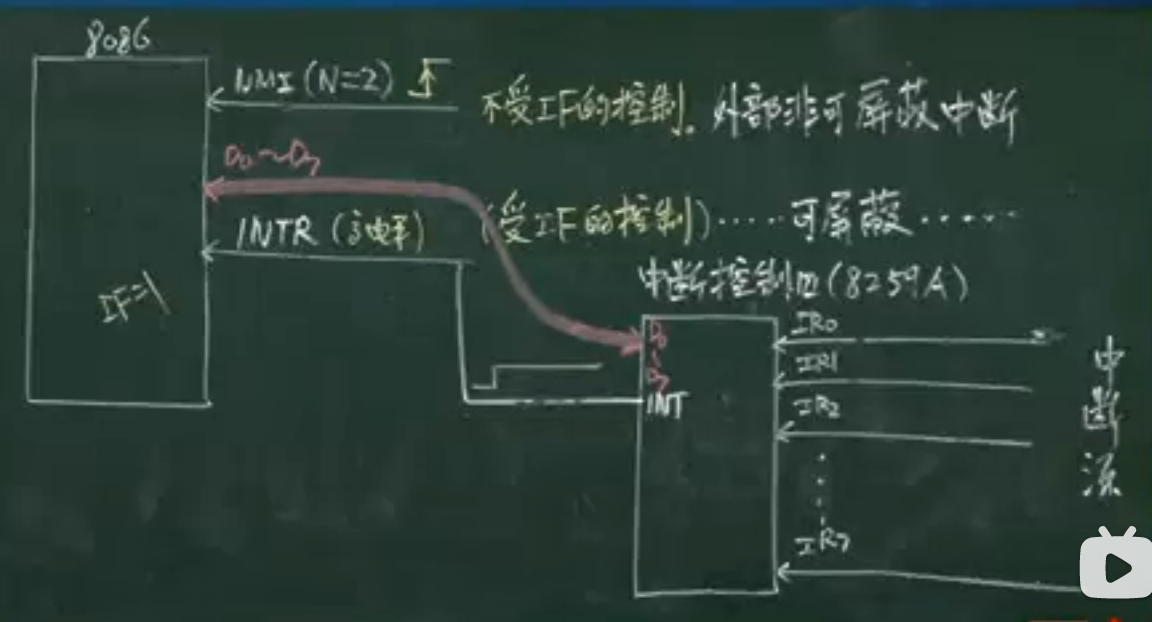 8086
NMI (N=2)
不受IF的控制. 外部非可屏蔽中断
D0~D7
INTR (高电平)
(受IF的控制)·····可屏蔽······
IF=1
中断控制四(8259A)
D0
~
D7
INT
IR0
IR1
IR2
IR7
中断源